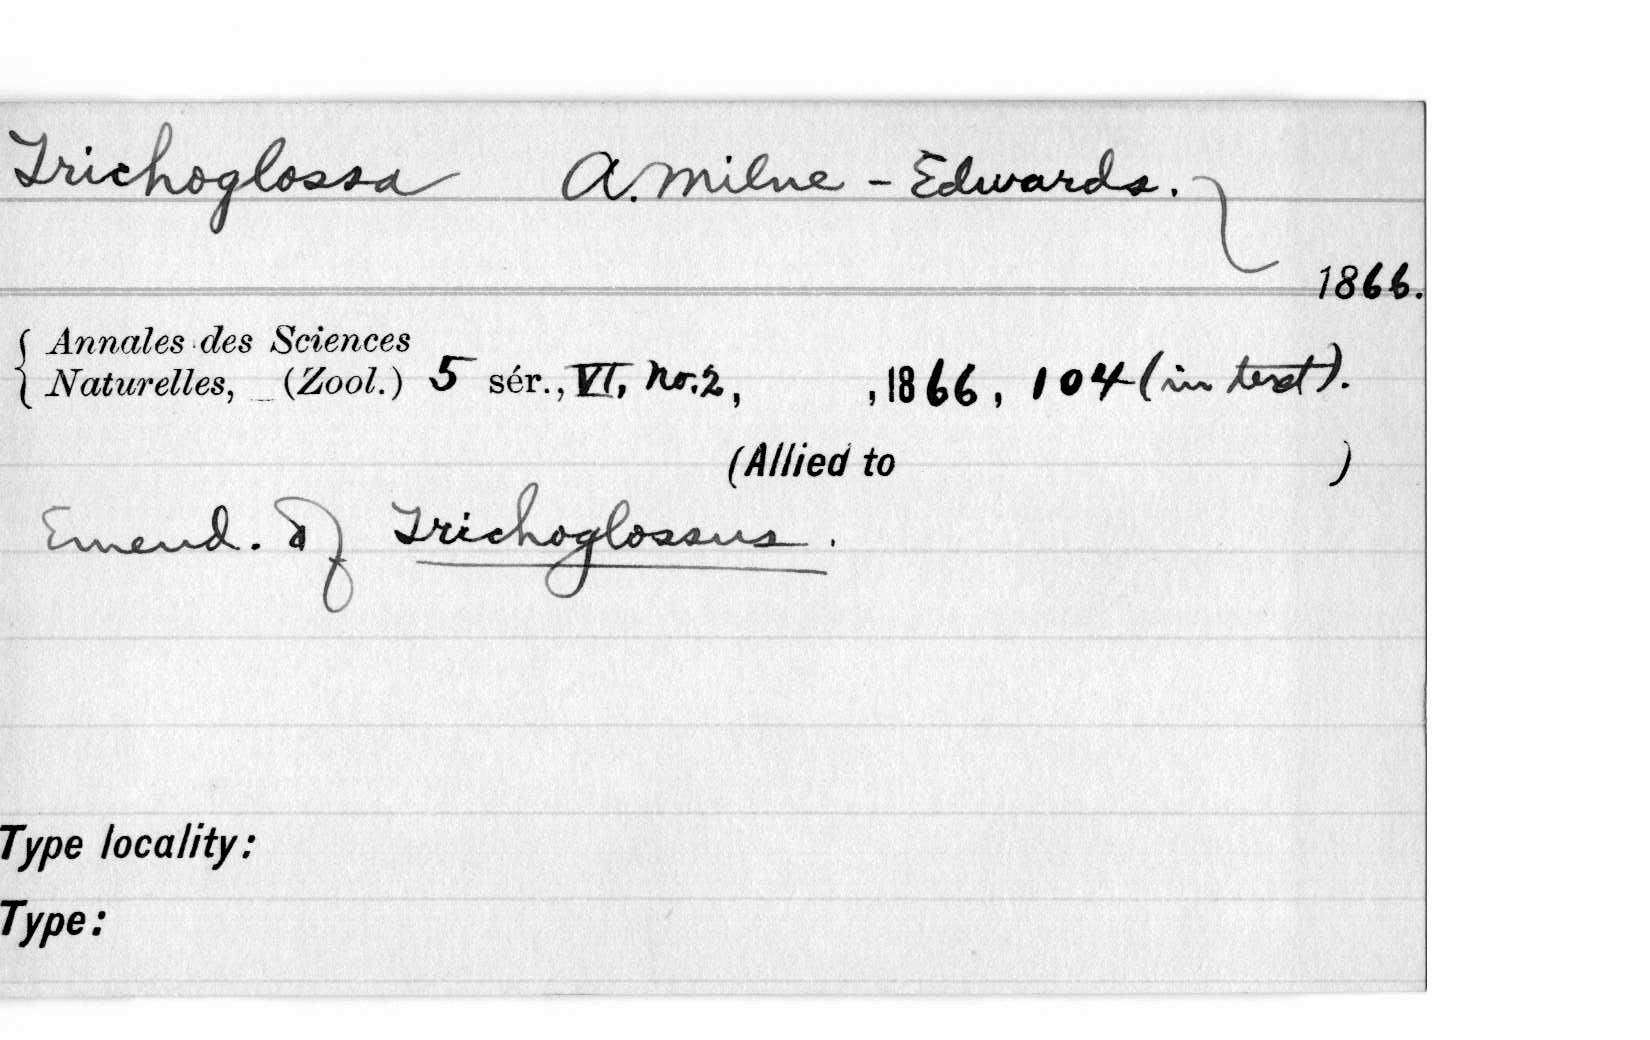 Trichoglossa A. Milne - Edwards.
1866.
Annales des Sciences
Naturelles, _ (Zool.) 5 sér., VI, No. 2, , 1866, 104 (in text).
(Allied to )
Emend. of Trichoglossus.
Type locality:
Type: